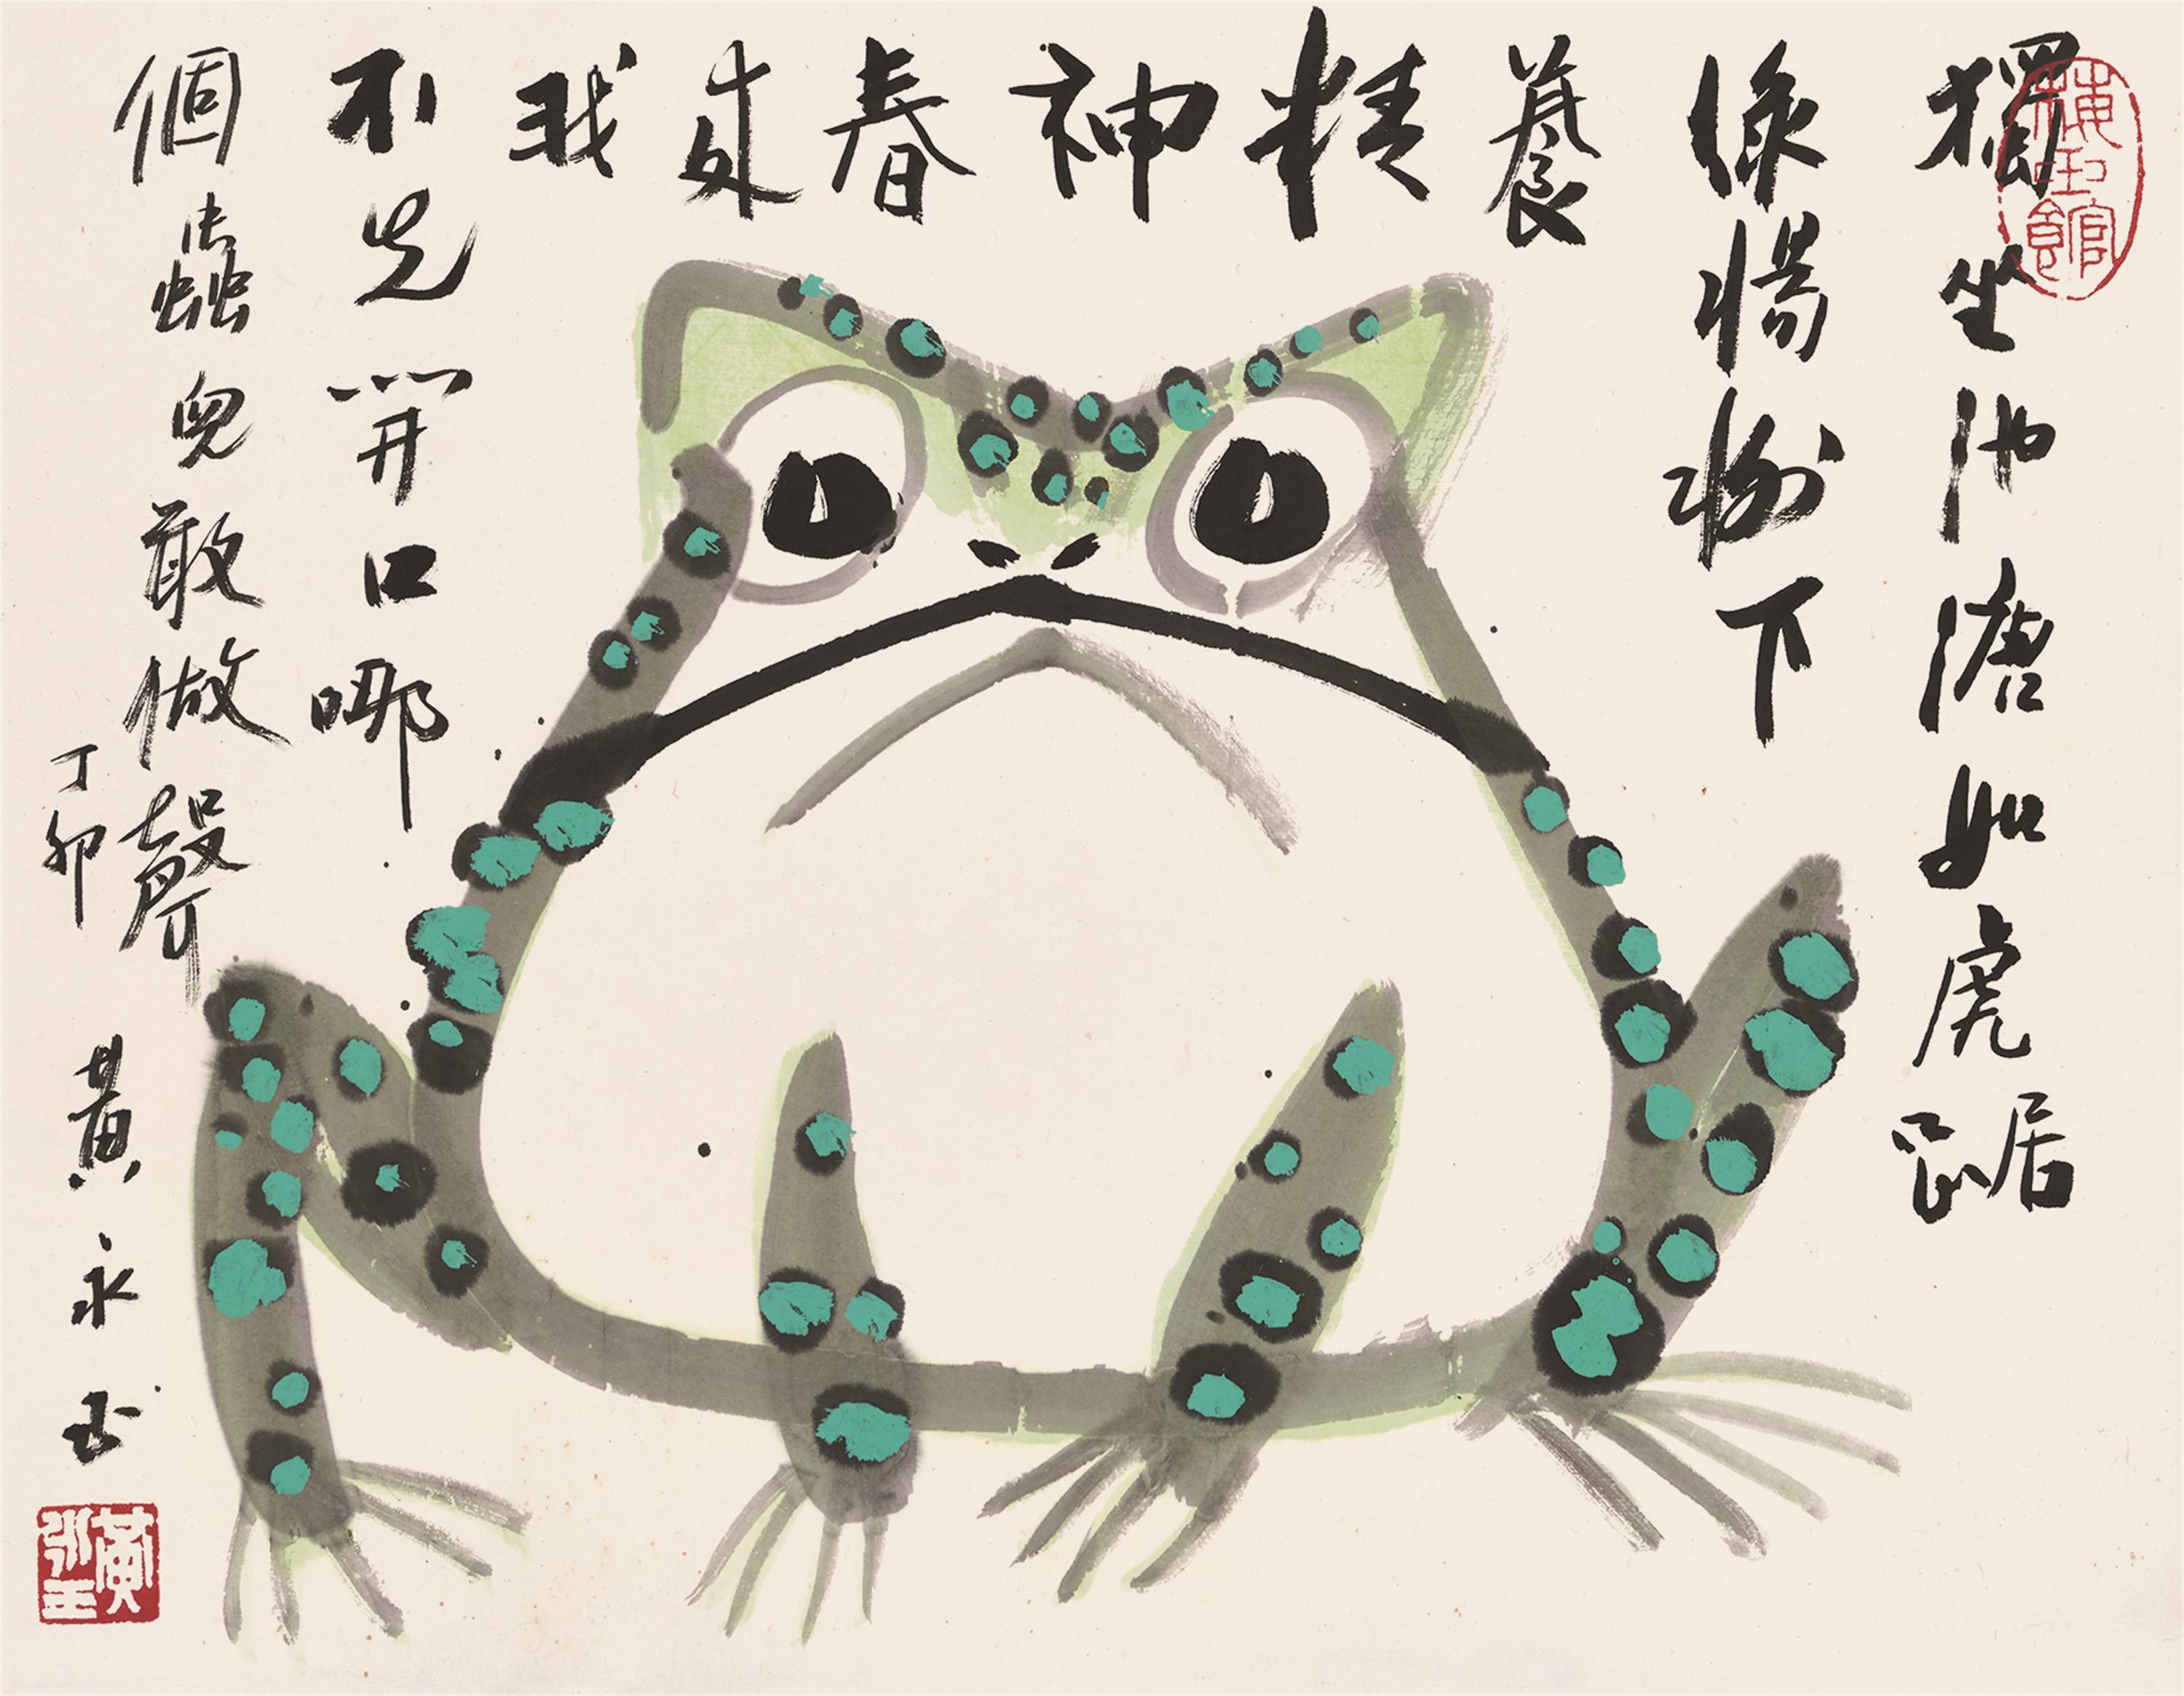 獨坐池溏如虎踞
綠楊樹下
養
精
神
春
來
我
不先開口哪
個蟲兒敢做聲
丁卯
黃永玉
黃永玉
梅玉館